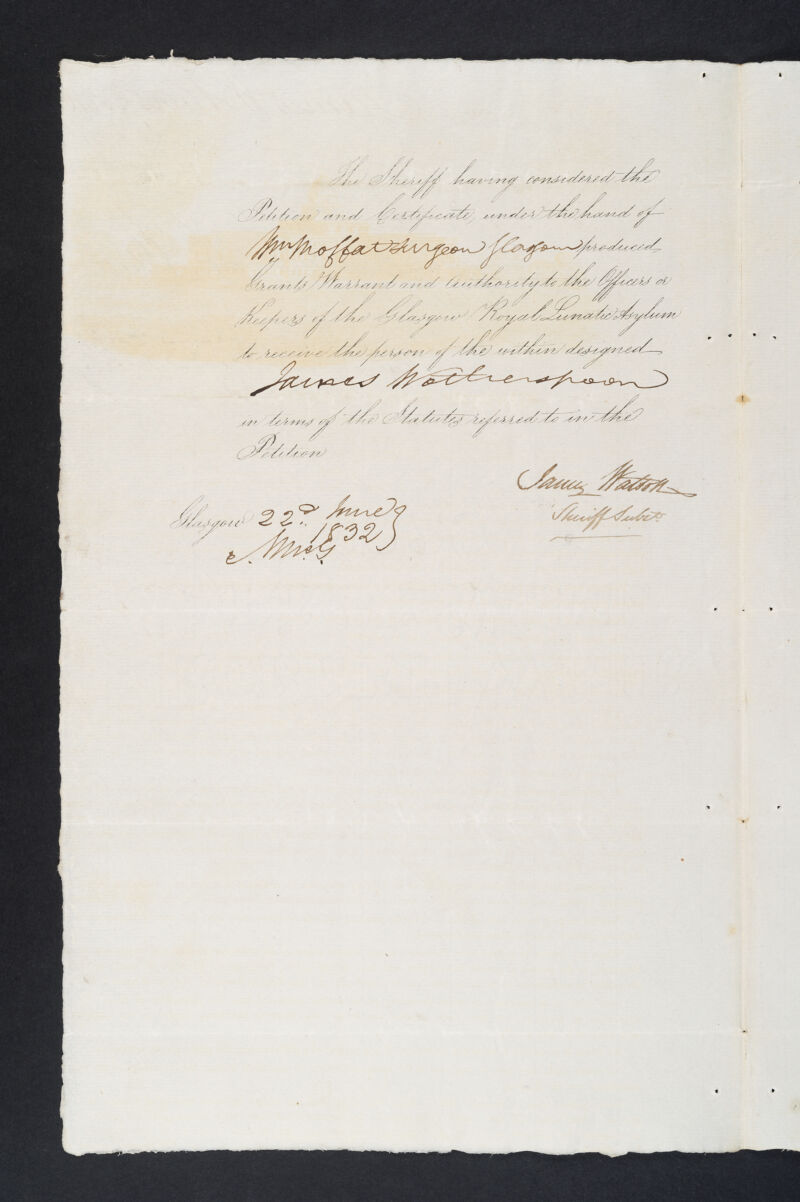 The Sheriff having considered the
Petition and Certificate, under the hand of
Wm Moffat Surgeon Glasgow produced
Grants Warrant and Authority to the Officers or
Keepers of the Glasgow Royal Lunatic Asylum
to receive the person of the within designed
James Wotherspoon
in terms of the Statutes referred to in the
Petition
James Watson
Sheriff Subst
Glasgow 22d June
1832